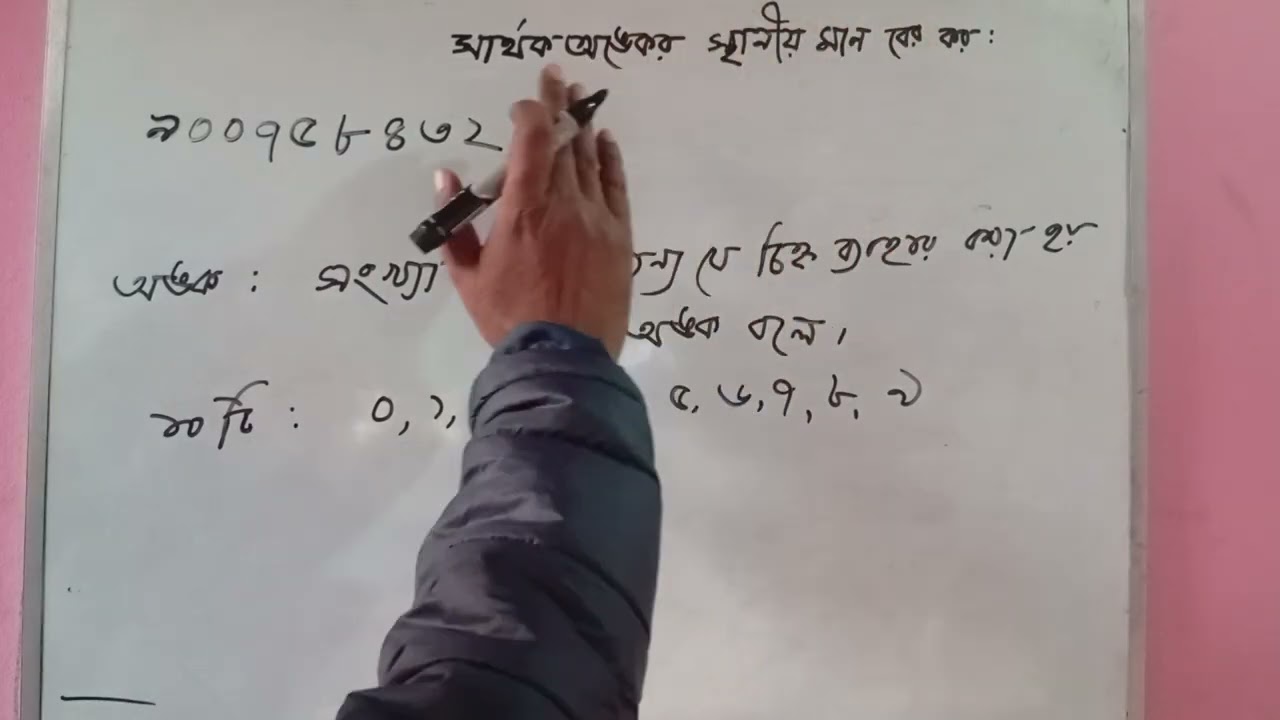 সার্থক অঙ্কের স্থানীয় মান বের কর :
৯০০৭৫৮৪৩২
অঙ্ক : সংখ্যা যে চিহ্ন ব্যবহার করা হয়
অঙ্ক বলে।
১০টি : ০, ১, ৫, ৬, ৭, ৮, ৯